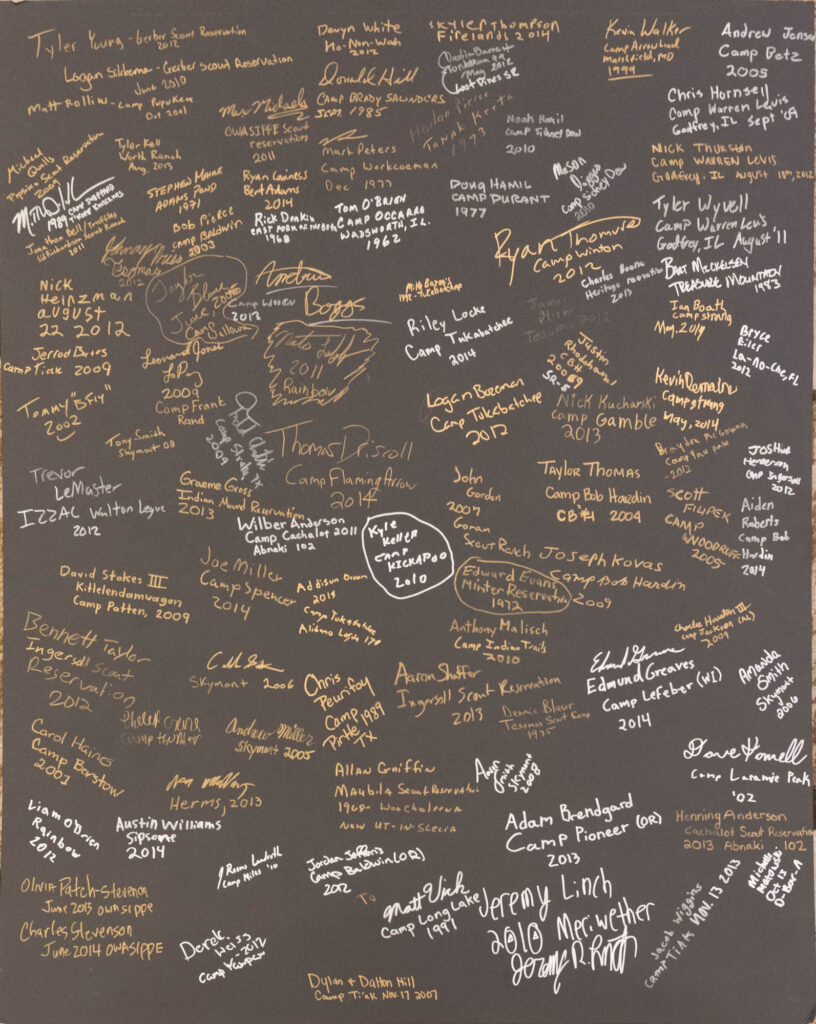 Tyler Young - Gerber Scout Reservation
2012
Logan Sikkema - Gerber Scout Reservation
June 2010
Matt Rollins - Camp Pupukea
Oct 2001
Devyn White
Ho-Non-Wah
2012
Skyler Thompson
Firelands 2014
May 2012
Lost Pines SR
Kevin Walker
Camp Arrowhead
1999
Andrew Jensen
Camp Betz
2005
Donald Hill
Camp Brady Saunders
Sept. 1985
Chris Hornsell
Camp Warren Levis
Godfrey, IL Sept '09
Max Michaels
OWASIPPE Scout
reservation
2011
Harlan Pierce
1973
Noah Hamil
Camp Sidney Dew
2010
Mark Peters
Camp Workcoeman
Dec 1977
Nick Thurston
Camp Warren Levis
Godfrey, IL August 18th, 2012
Michael Qualls
Tyler Kell
Worth Ranch
Aug. 2013
Stephen Maire
Adams Pond
1971
Ryan Lainess
Bert Adams
2014
Doug Hamil
Camp Durant
1977
Mason
Camp Sidney Dew
2010
Tyler Wyvell
Camp Warren Levis
Godfrey, IL August '11
Bob Pierce
Camp Baldwin
2003
Rick Donkin
1968
Tom O'Brien
Camp Occarro
Wadsworth, IL.
1962
Ryan Thomure
Camp Winton
2012
Charles Boone
Heritage reservation
2013
Bart Mickelsen
Treasure Mountain
1983
Nick
Heinzman
August
22 2012
Camp Warren
2013
Andrew
Boggs
2011
Rainbow
Riley Locke
Camp Tukabatchee
2014
Ian Boath
Camp strang
May, 2014
Bryce
Eiler
La-No-Che, FL
2012
Jerrod Byers
Camp Tiak 2009
Leonard Jones
2009
Camp Frank
Rand
Justin
CBH
2009
Tommy "BFIY"
2002
Tony Smith
Skymont 08
Logan Bozeman
Camp Tukabatchee
2012
Nick Kucharski
Camp Gamble
2013
Kevin
Camp strang
May, 2014
Thomas Driscoll
Camp Flaming Arrow
2014
Brayden McGowan
2012
Joshua
Henderson
Camp Ingersoll
2012
Trevor
LeMaster
IZZAC Walton Legue
2012
Graeme Gross
Indian Mound Reservation
2013
Wilber Anderson
Camp Cachalot 2011
Abnaki 102
Kyle
Keller
Camp
Kickapoo
2010
John
Gordon
2007
Goram
Scout Ranch
Taylor Thomas
Camp Bob Hardin
CB#1 2004
Scott
Filipek
Camp
Woodruff
2005
Aiden
Roberts
Camp Bob
Hardin
2014
Joe Miller
Camp Spencer
2014
Joseph Kovas
Camp Bob Hardin
2009
Edward Evans
Minter Reservation
1972
David Stokes III
Kittelendamvagan
Camp Patten, 2009
Addison Brown
Camp Tukabatchee
Alibamu Lodge 179
Anthony Malisch
Camp Indian Trails
2010
Charles Houston III
Camp Jackson (AL)
2009
Bennett Taylor
Ingersoll Scout
Reservation
2012
Skymont 2006
Chris
Peurifoy
Camp 1989
Pirtle
TX
Aaron Shaffer
Ingersoll Scout Reservation
2013
Dennis Blaser
Tesomas Scout Camp
1975
Edmund Greaves
Camp Lefeber (WI)
2014
Amanda
Smith
Skymont
2006
Camp Hunter
Andrew Miller
Skymont 2005
Carol Haines
Camp Barstow
2001
Herms, 2013
Allan Griffin
Maubila Scout Reservation
1968- Woocheleeva
Now UT-IN-SELICA
Aaron
Smith
Skymont
2008
Dave Howell
Camp Laramie Peak
'02
Liam O'Brien
Rainbow
2012
Austin Williams
Sipsome
2014
Adam Brendgard
Camp Pioneer (OR)
2013
Henning Anderson
Cachalot Scout Reservation
2013 Abnaki 102
Camp Miles '10
Jordan Jefferis
Camp Baldwin (OR)
2012
Olivia Patch-Stevenson
June 2013 OWASIPPE
Charles Stevenson
June 2014 OWASIPPE
To
Matt Vick
Camp Long Lake
1997
Jeremy Linch
2010 Meriwether
Jacob Wiggins
Camp Tiak Nov. 13 2013
Michelle
Oct 13
D-Bar-A
Derek
Weiss
2012
Dylan + Dalton Hill
Camp Tiak Nov. 17 2007